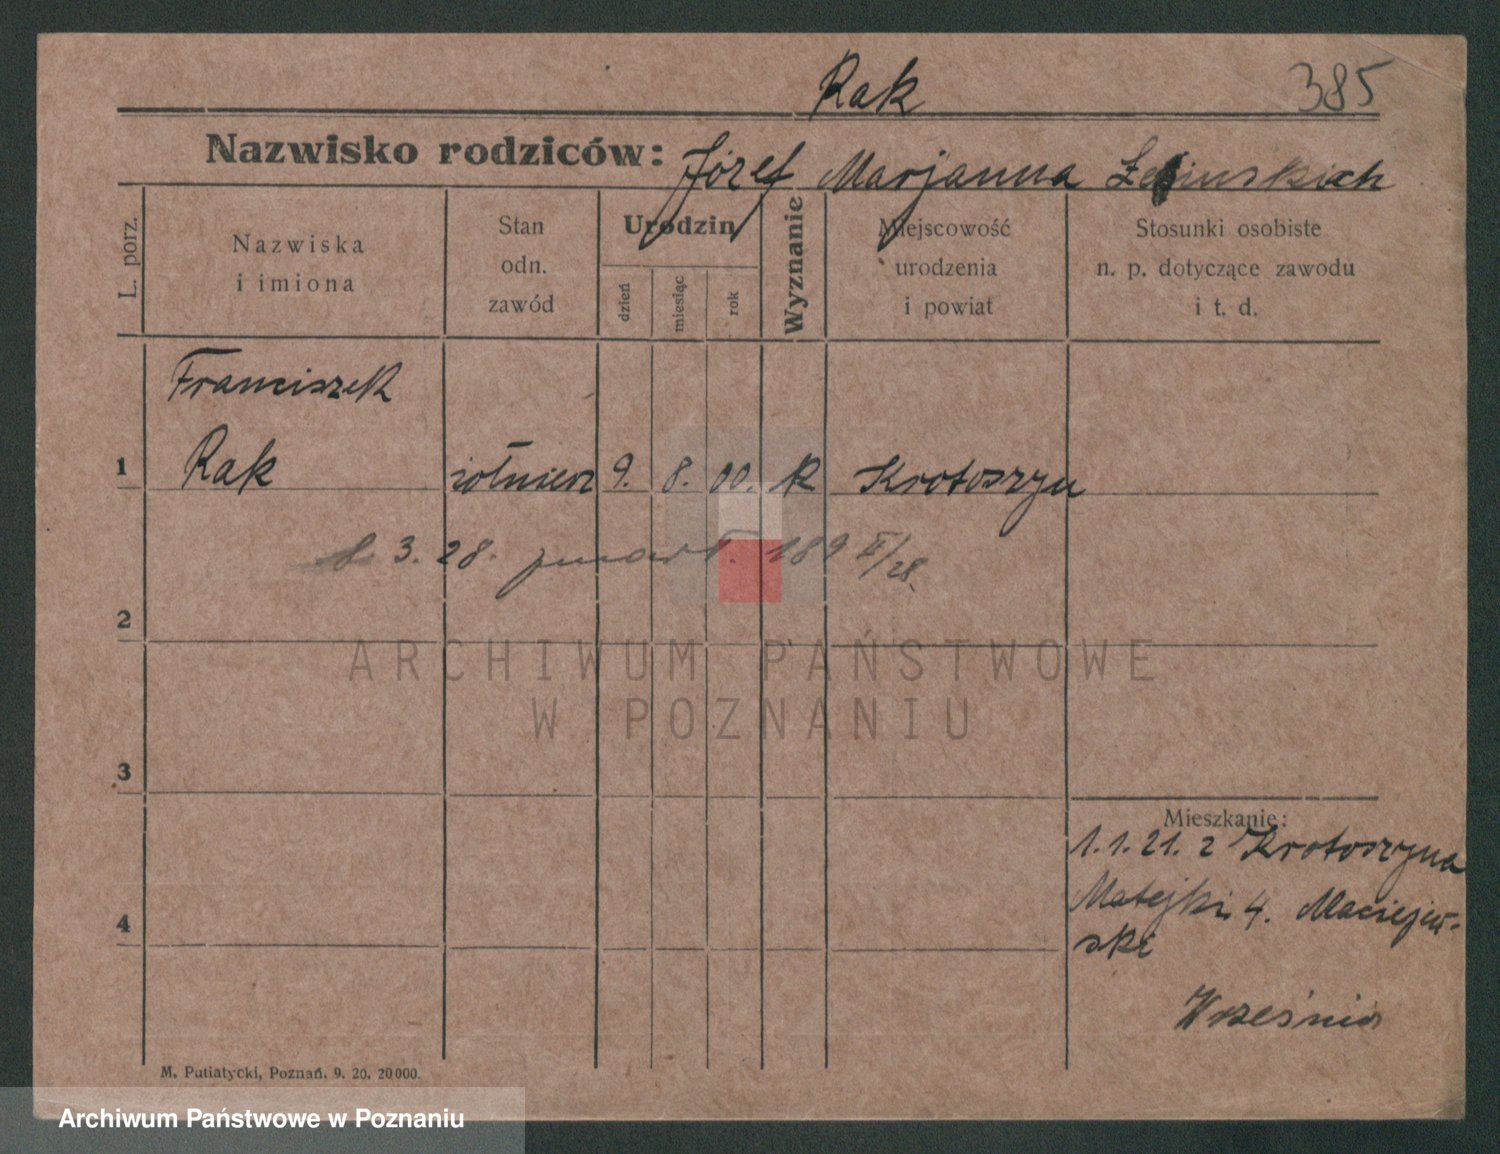 Rak 385
Nazwisko rodziców: Józef Marjanna
L. porz.
Nazwiska
i imiona
Stan
odn.
zawód
Urodzin
dzień
miesiąc
rok
Wyznanie
Miejscowość
urodzenia
i powiat
Stosunki osobiste
n. p. dotyczące zawodu
i t. d.
Franciszek
1 Rak żołnierz 9. 8. 00. k Krotoszyn
3. 28. 189 II/28.
2
ARCHIWUM PAŃSTWOWE
W POZNANIU
3
Mieszkanie:
1.1.21. z Krotoszyna
Matejki 4. Maciejew-
ski
4
Września
M. Putiatycki, Poznań. 9. 20. 20000.
Archiwum Państwowe w Poznaniu